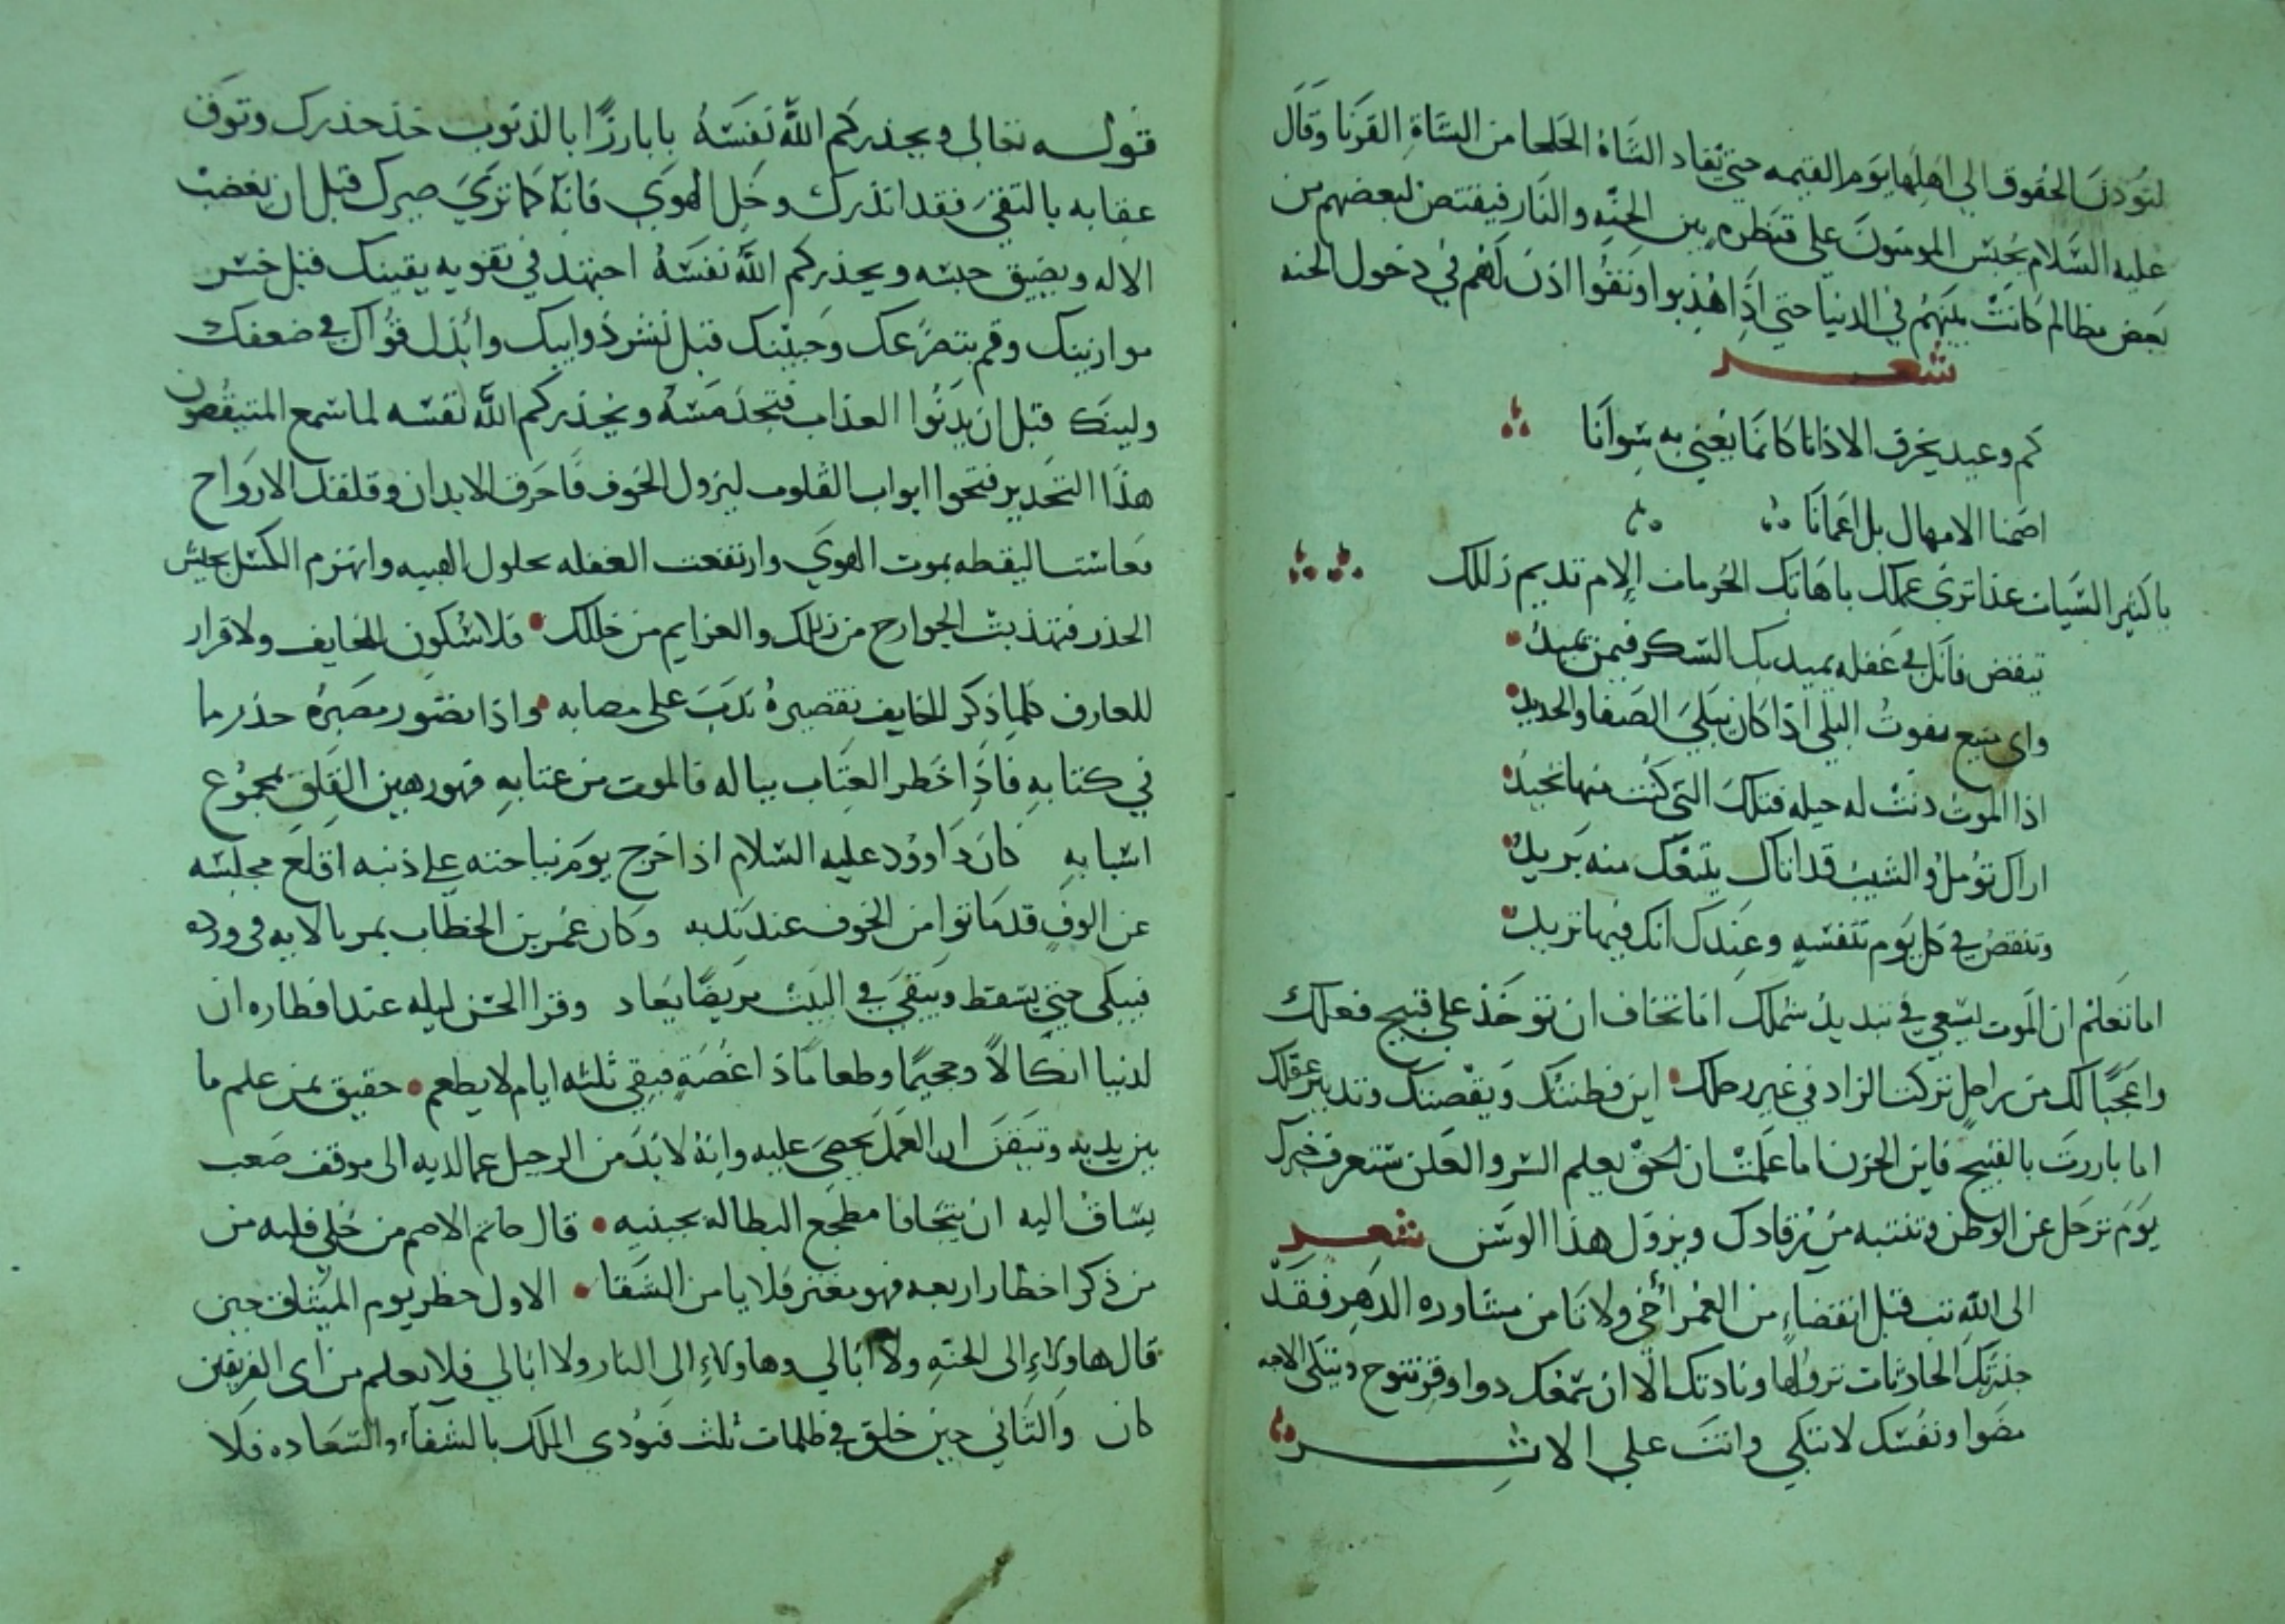 لتؤدن الحقوق الي اهلها يوم القيمه حتي تقاد الشاة الجلحا من الشاة القرنا وقال
عليه السلام يحبس المومنون علي قنطره بين الجنه والنار فيقتص لبعضهم من
بعض مظالم كانت بينهم في الدنيا حتي اذا هذبوا ونقوا اذن لهم في دخول الجنه
شعر
كم وعيد يخرق الاذانا كانما يعني به سوانا
اصمنا الامهال بل اعمانا
يا كثير السيات غدا تري عملك يا هاتك الحرمات إلام تديم زللك
تيقض فانك في غفله يميد بك السكر فيمن يميد
واي منيع يفوت البلي اذا كان يبلي الصفا والحديد
اذا الموت دنت له حيله فتلك التي كنت منها تحيد
اراك تومل والشيب قد اتاك ينعك منه بريد
وتنقص في كل يوم تنفسه وعندك انك فيها تزيد
اما تعلم ان الموت يسعي في تبديد شملك اما تخاف ان توخذ علي قبيح فعلك
واعجبا لك من راحل تركت الزاد في غير رحلك اين فطنتك ويقضتك وتدبير عقلك
اما بارزت بالقبيح فاين الحزن اما علمت ان الحق يعلم السر والعلن ستعرف خبرك
يوم ترحل عن الوطن وتنتبه من رقادك ويزول هذا الوسن شعر
الى الله تب قبل انقضاء من العمر أخي ولا تامن مساوره الدهر فقد
حدثتك الحادثات نزولها ونادتك الا ان سمعك ذو وقر تنوح وتبكي الاحبه
مضوا ونفسك لا تبكي وانت علي الاثر
قوله تعالى ويحذركم الله نفسه يا بارزا بالذنوب خذ حذرك وتوق
عقابه بالتقي فقد انذرك وخل الهوي فانه كما تري صيرك قبل ان يغضب
الاله ويضيق حبسه ويحذركم الله نفسه اجتهد في تقويه يقينك قبل خسر
موازينك وقم بتضرعك وحبتك قبل نشر دواوينك وابذل قواك في ضعفك
ولينك قبل ان يدنوا العذاب فتجد مسه ويحذركم الله نفسه لما سمع المتيقضون
هذا التحذير فتحوا ابواب القلوب لنزول الخوف فاحرق الابدان وقلقل الارواح
فعاشت اليقظه بموت الهوي وارتفعت الغفله بحلول الهيبه وانهزم الكسل بجيش
الحذر فتهذبت الجوارح من زللك والعزايم من خللك فلا سكون للخايف ولا قرار
للعارف كلما ذكر الخايف تقصيره ندب على مصابه واذا تصور مصيره حذر ما
في كتابه فاذا خطر العتاب بباله فالموت من عتابه فهو رهين القلق بمجموع
اسبابه كان داوود عليه السلام اذا خرج يوم نياحته علي ذنبه اقلع مجلسه
عن الوف قد ماتوا من الخوف عند ندبه وكان عمر بن الخطاب يمر بالايه في ورده
فيبكي حتي يسقط ويبقي في البيت مريضا يعاد وقرا الحسن ليله عند افطاره ان
لدنيا انكالا وجحيما وطعاما ذا غصة فبقي ثلثه ايام لا يطعم حقيق بمن علم ما
بين يديه وتيقن ان العمل يحصي عليه وانه لا بد من الرحيل عما لديه الى موقف صعب
يساق اليه ان يتجافا مضجع البطاله بجنبيه قال حاتم الاصم من خلي قلبه من
من ذكر اخطار اربعه فهو مغتر فلا يامن الشقا الاول خطر يوم الميثاق حين
قال هاولاء إلى الجنه ولا ابالي وهاولاء إلى النار ولا ابالي فلا يعلم من اى الفريقين
كان والثاني حين خلق في ظلمات ثلث فنودي الملك بالشقاء والسعاده فلا